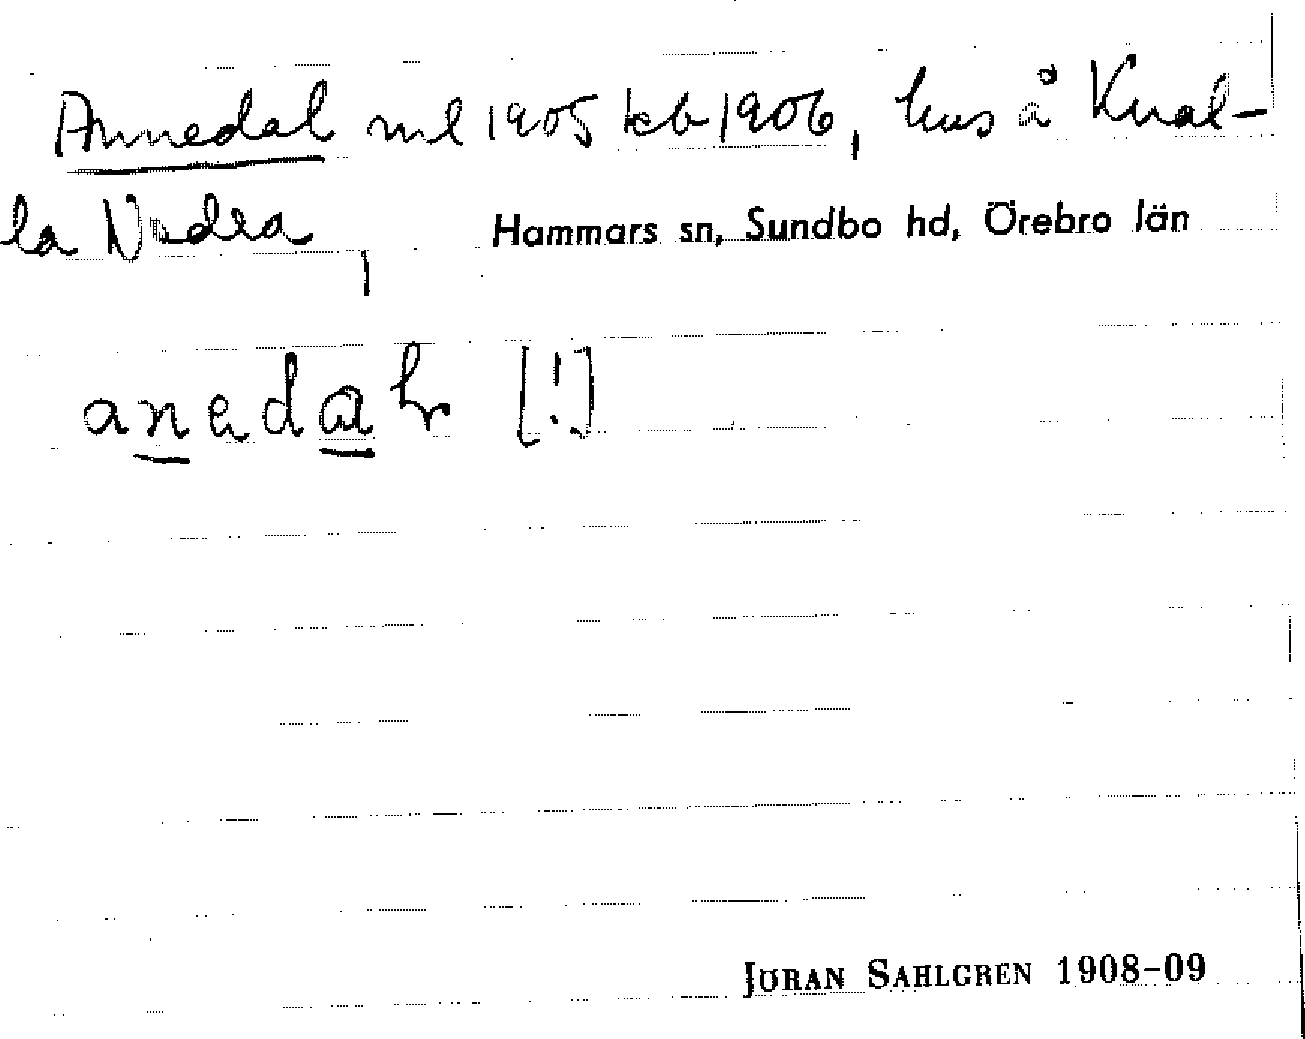 Annedal ml 1905 kb 1906, hus å Knal-
la Norra,
Hammars sn, Sundbo hd, Örebro län
anadah [!]
JÖRAN SAHLGREN 1908-09